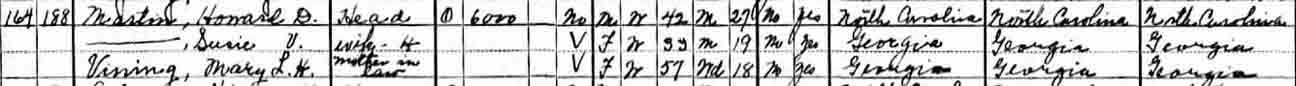 164 188 Martin, Howard D. Head O 6000 No M W 42 M 27 No Yes North Carolina North Carolina North Carolina
———, Susie V. wife - H V F W 33 M 19 No Yes Georgia Georgia Georgia
Vining, Mary L. H. Mother in law V F W 57 Wd 18 No Yes Georgia Georgia Georgia